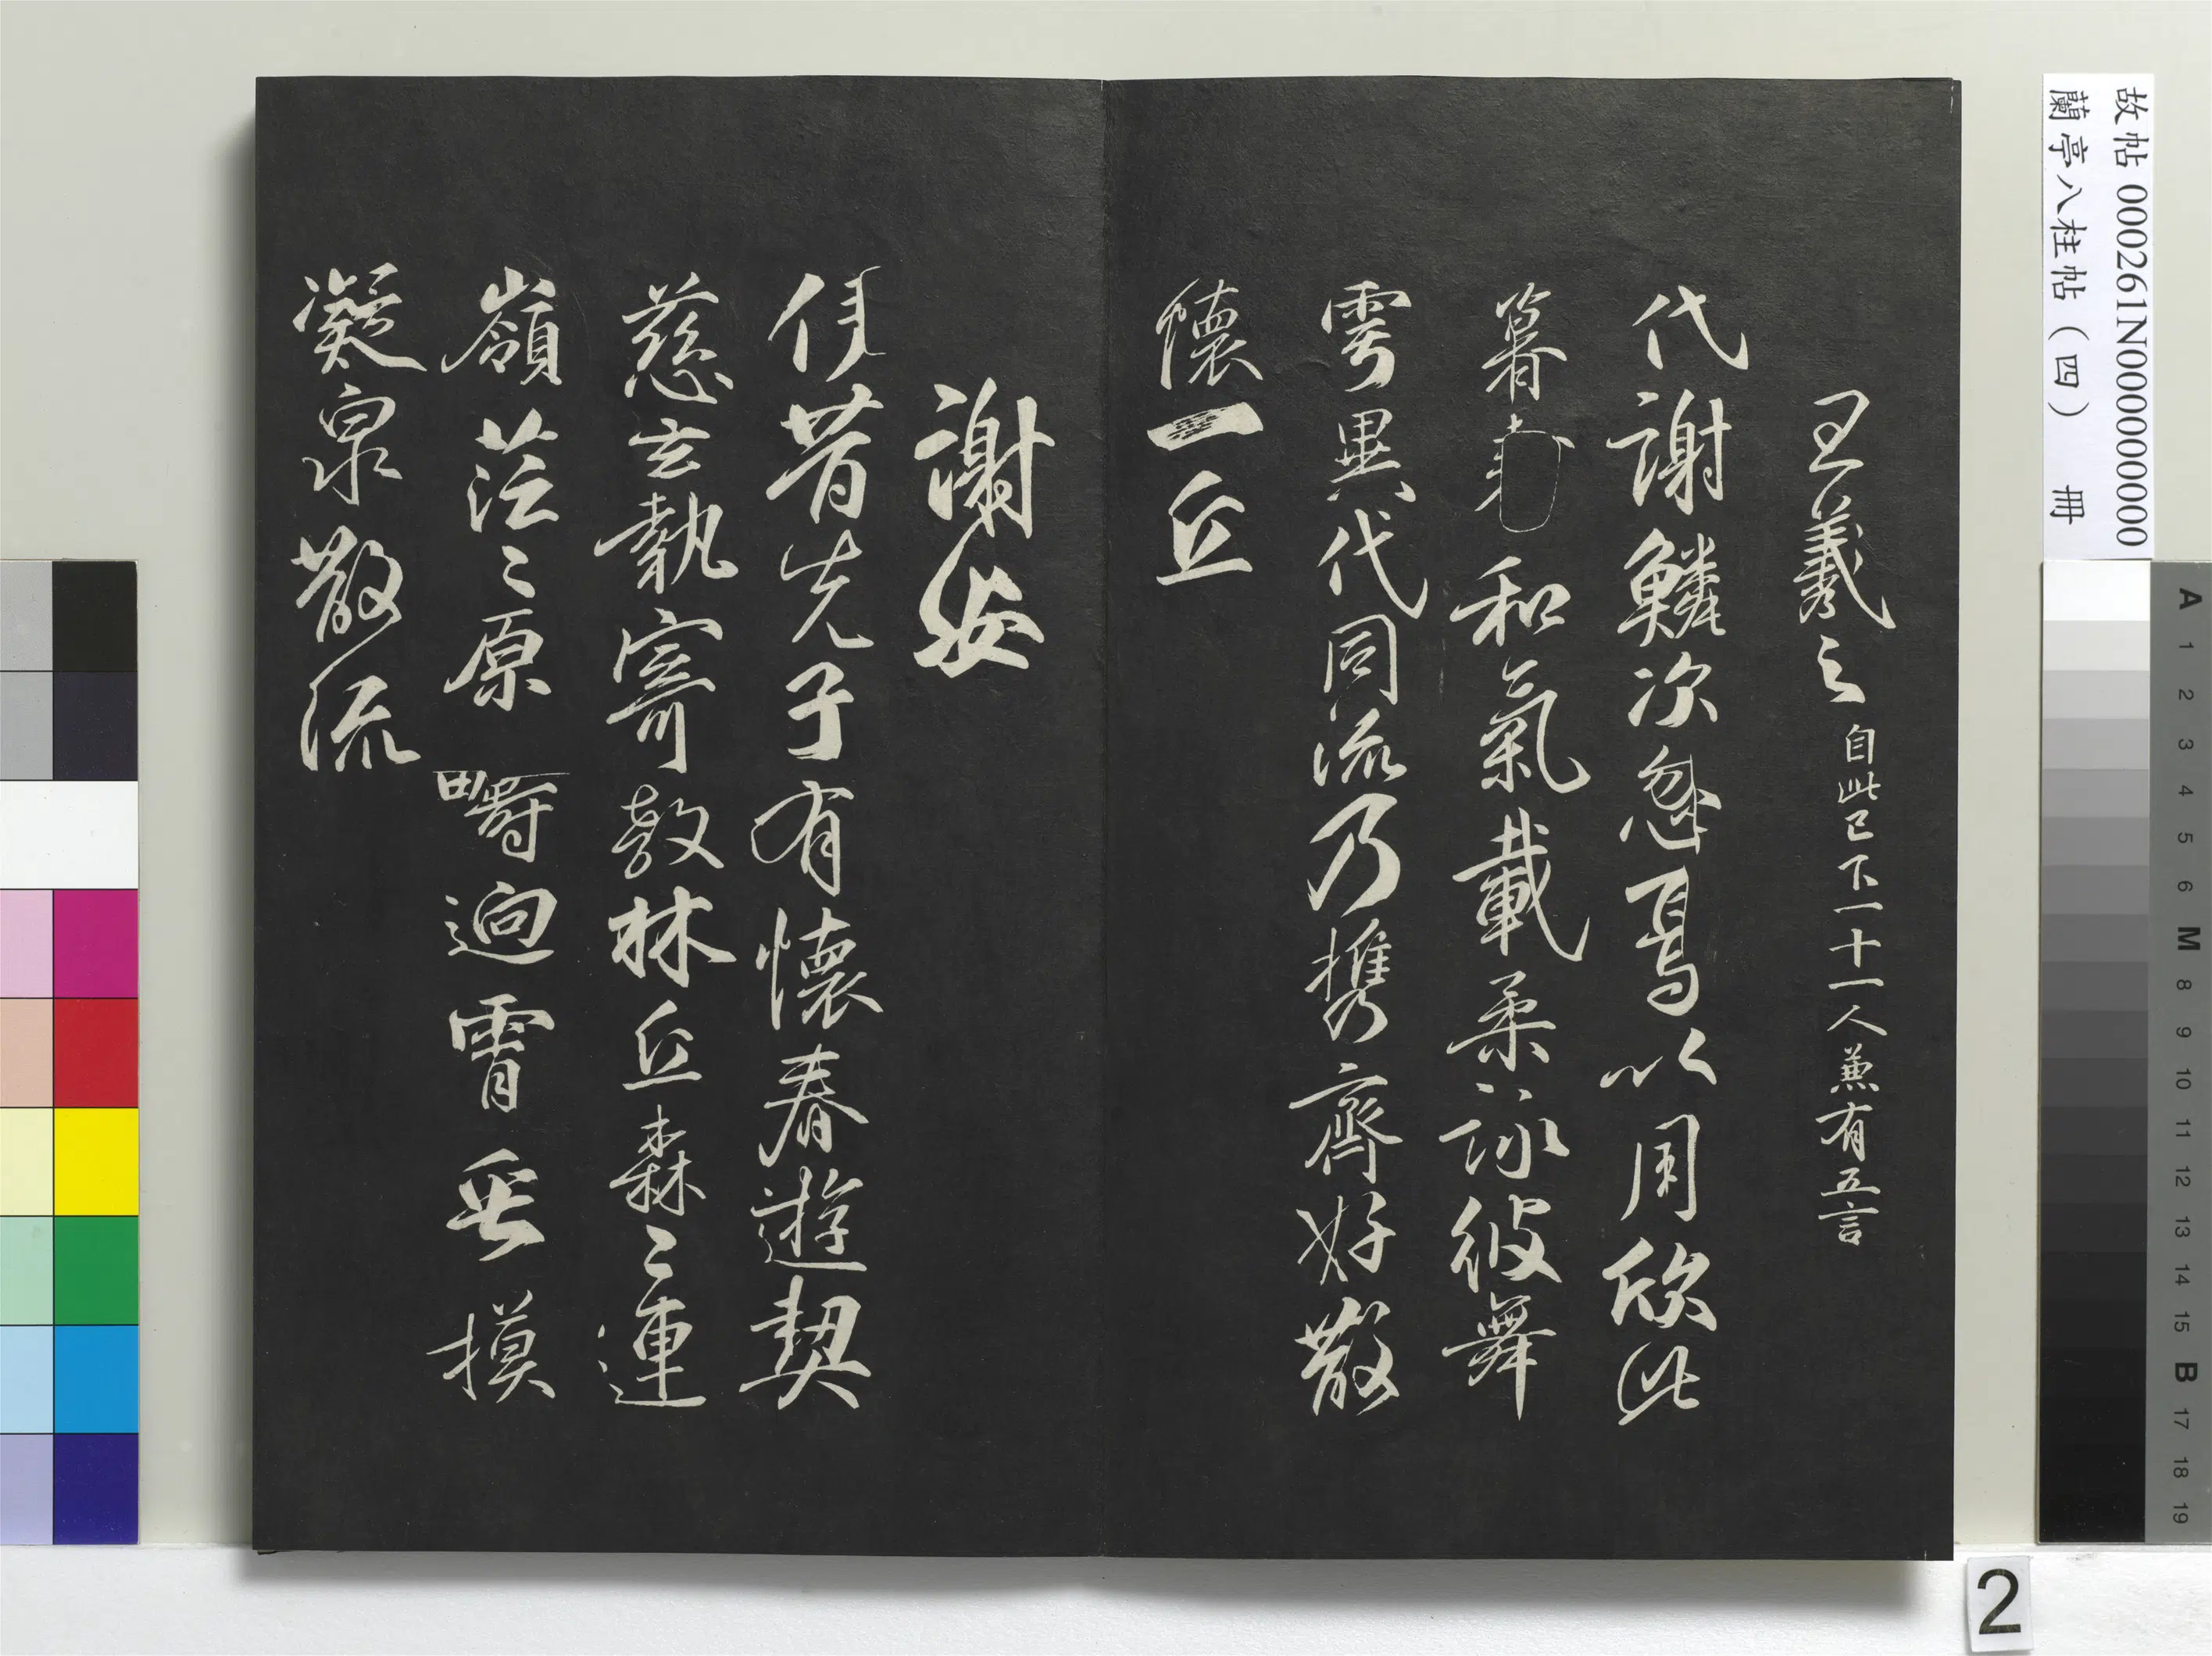 故帖 000261N000000000
蘭亭八柱帖（四） 冊
王羲之 自此已下一十一人兼有五言
代謝鱗次忽焉以周欣此
暮和氣載柔詠彼舞
雩異代同流乃携齊好散
懷一丘
謝安
伊昔先子有懷春遊契
慈玄執寄敖林丘森〻連
嶺茫〻原疇迥霄垂摸
凝泉散流
A 1 2 3 4 5 6 M 8 9 10 11 12 13 14 15 B 17 18 19
2